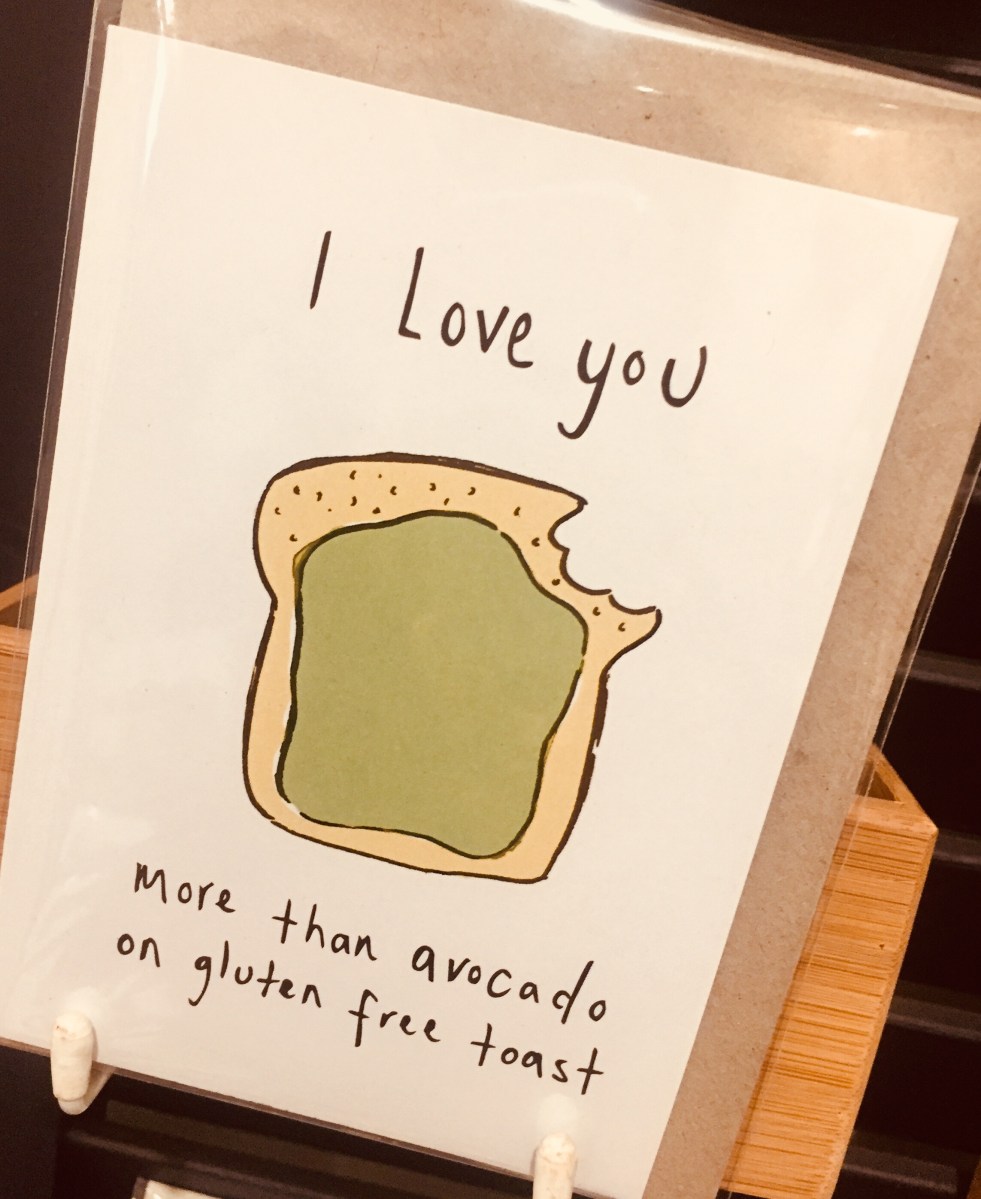 I Love you
more than avocado
on gluten free toast